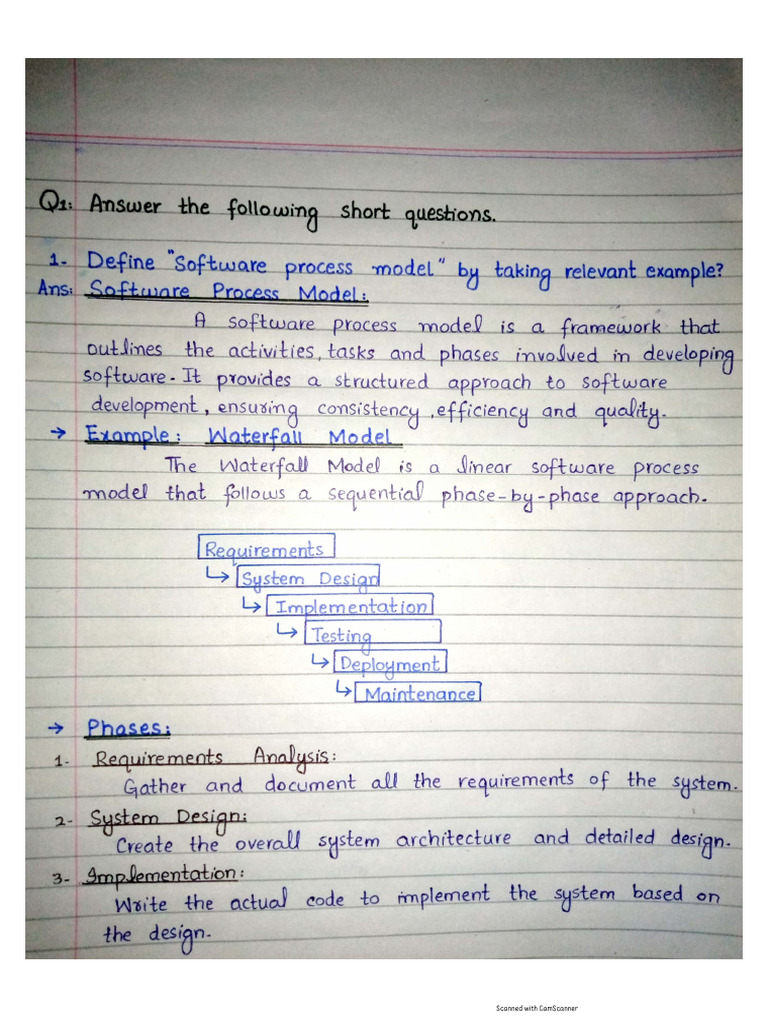 Q1: Answer the following short questions.
1- Define "Software process model" by taking relevant example?
Ans: Software Process Model:
A software process model is a framework that
outlines the activities, tasks and phases involved in developing
software. It provides a structured approach to software
development, ensuring consistency, efficiency and quality.
→ Example: Waterfall Model
The Waterfall Model is a linear software process
model that follows a sequential phase-by-phase approach.
Requirements
↳ System Design
↳ Implementation
↳ Testing
↳ Deployment
↳ Maintenance
→ Phases:
1- Requirements Analysis:
Gather and document all the requirements of the system.
2- System Design:
Create the overall system architecture and detailed design.
3- Implementation:
Write the actual code to implement the system based on
the design.
Scanned with CamScanner